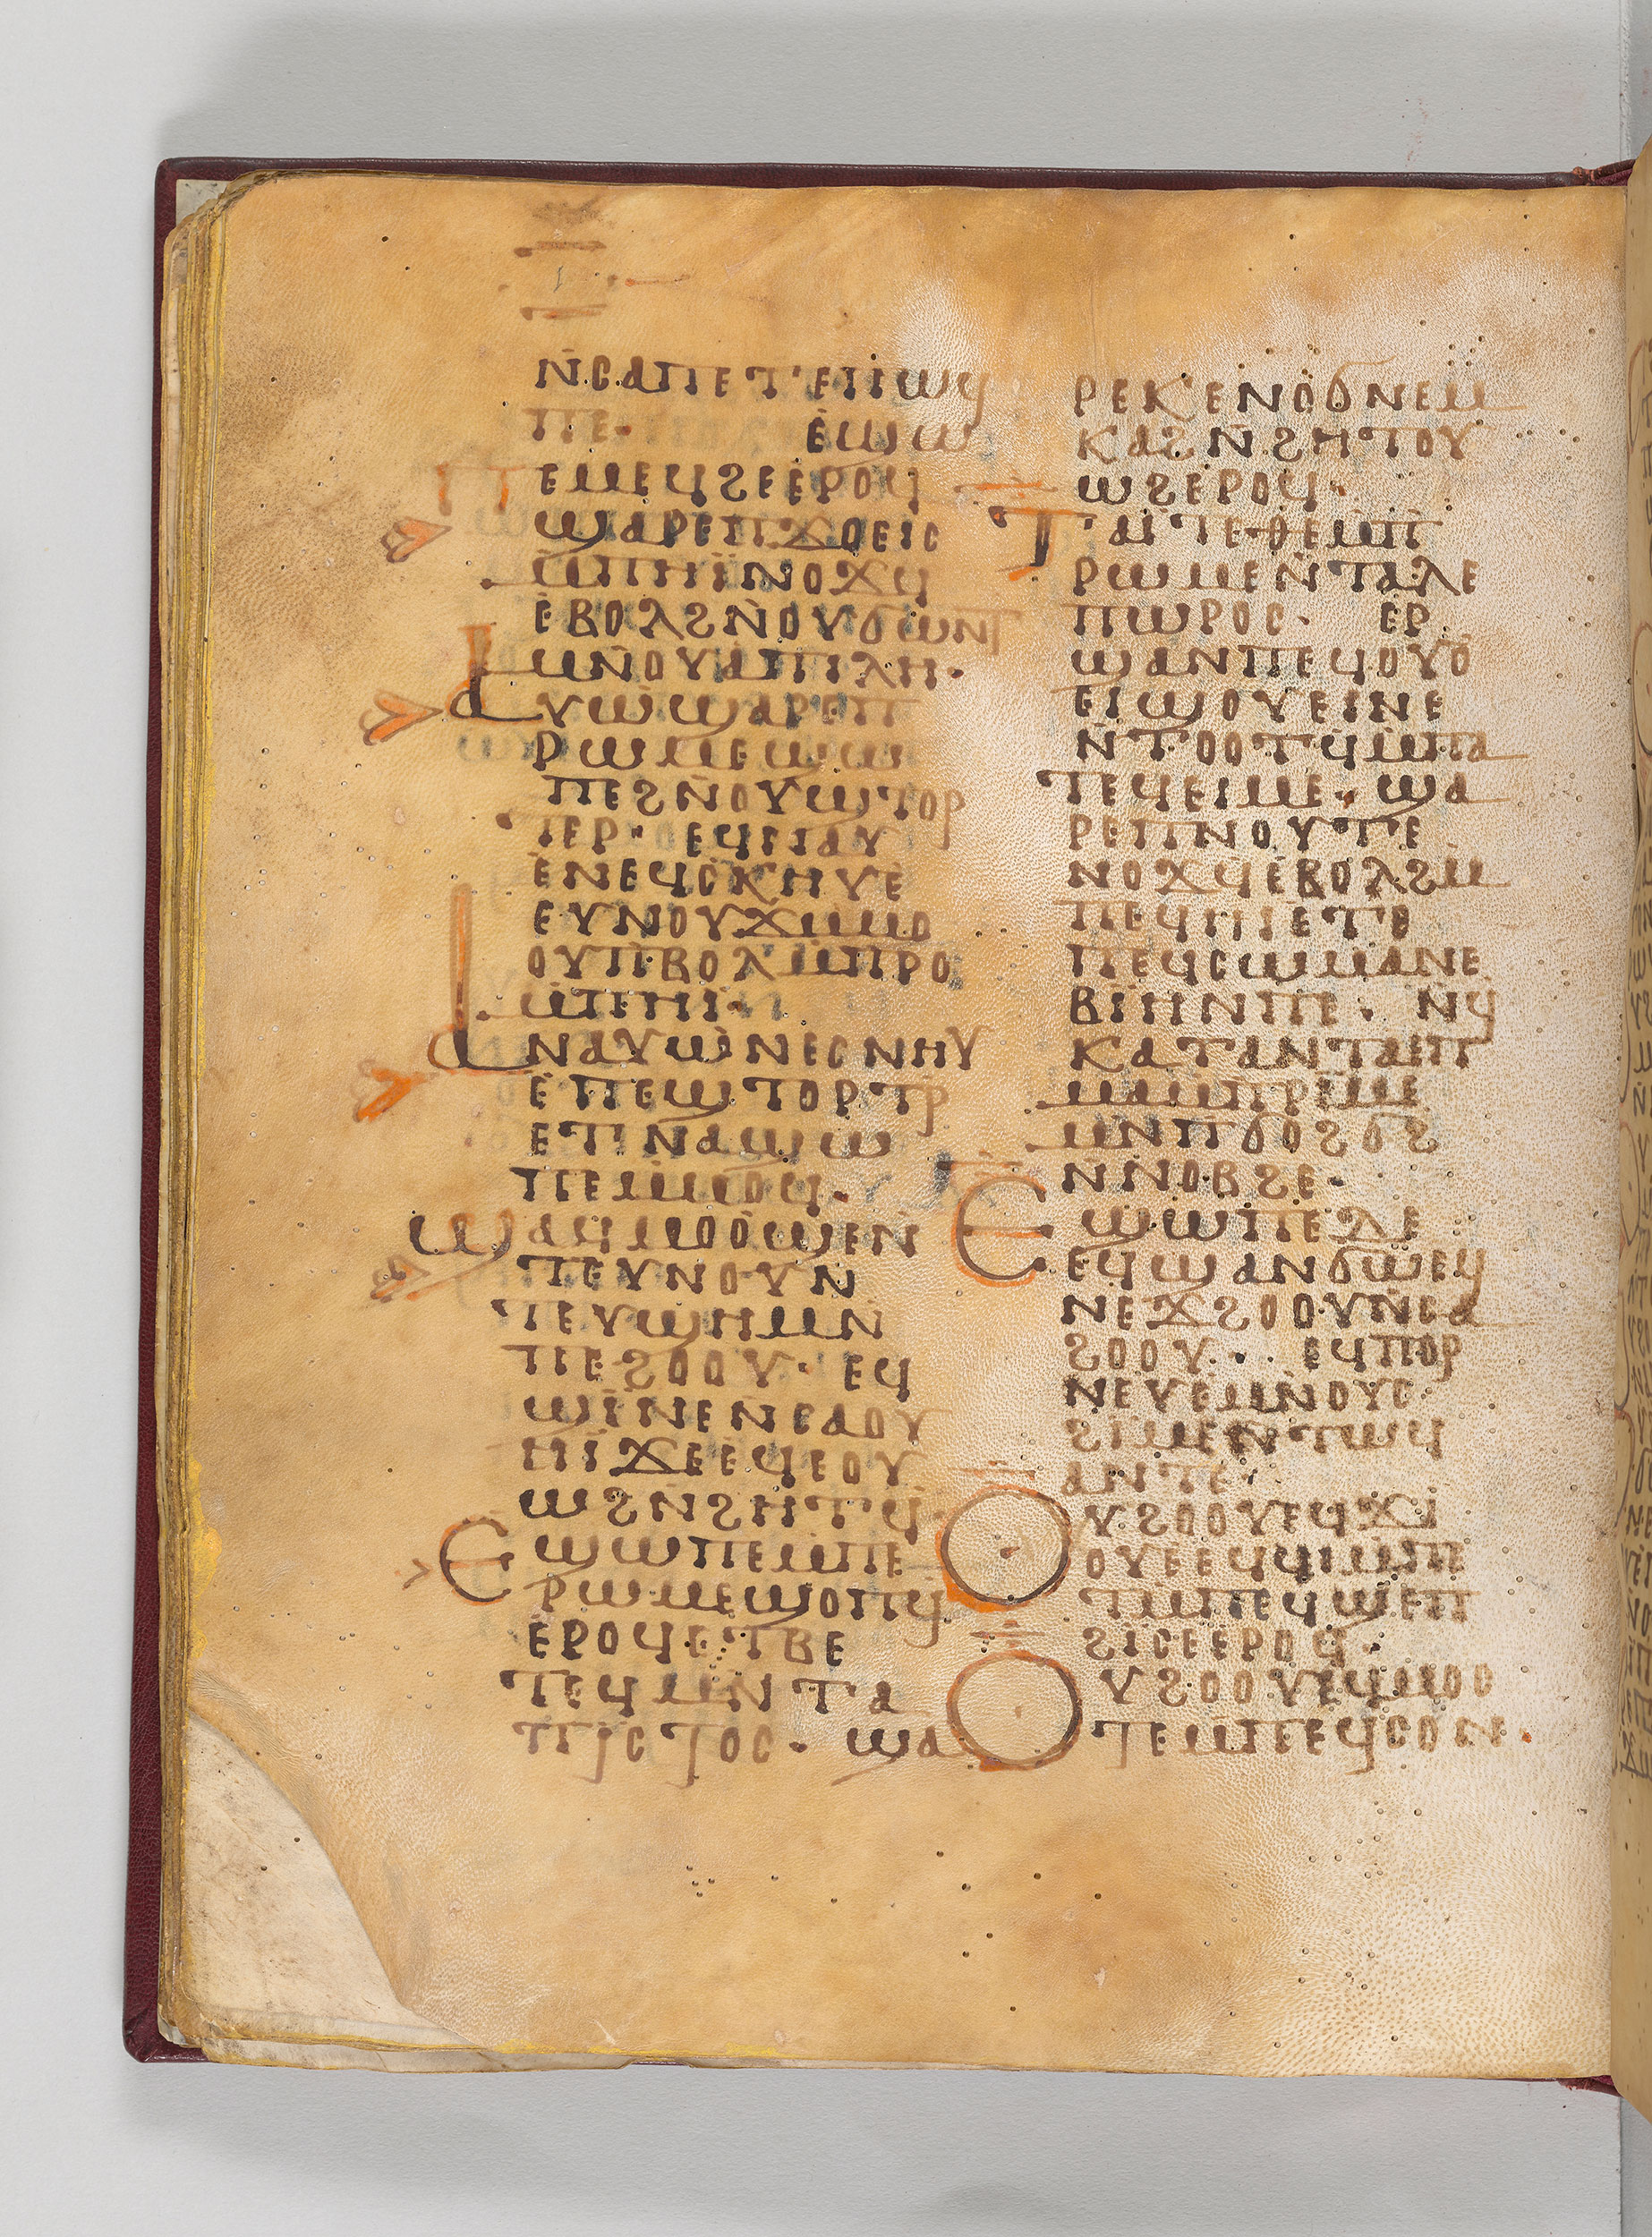 ⲛ̀ⲥⲁⲡⲉⲧⲉⲡⲱϥ
ⲡⲉ· ⲉ̀ϣⲱ
ⲡⲉⲙⲉϥϩⲉⲉⲣⲟϥ
ϣⲁⲣⲉⲡϫⲟⲉⲓⲥ
ⲙ̀ⲡⲏⲓ̈ⲛⲟϫϥ
ⲉ̀ⲃⲟⲗϩⲛ̀ⲟⲩϭⲱⲛⲧ
ⲙⲛ̀ⲟⲩⲁⲡⲓⲗⲏ·
ⲁⲩⲱϣⲁⲣⲉⲡ
ⲣⲱⲙⲉϣⲱ
ⲡⲉϩⲛ̀ⲟⲩϣⲧⲟⲣ
ⲧⲉⲣ· ⲉϥⲛⲁⲩ
ⲉ̀ⲛⲉϥⲥⲕⲏⲩⲉ̀
ⲉⲩⲛⲟⲩϫⲙ̀ⲙⲟ
ⲟⲩⲡⲃⲟⲗⲙ̀ⲡⲣⲟ
ⲙ̀ⲡⲏⲓ̈·
ⲁⲛⲁⲩⲱ̀ⲛⲉⲥⲛⲏⲩ
ⲉ̀ⲡⲉϣⲧⲟⲣⲧⲣ
ⲉⲧⲛⲁϣⲱ
ⲡⲉⲙ̀ⲙⲟϥ·
ϣⲁϥⲙⲟⲟϣⲉⲛ̀
ⲧⲉⲩⲛⲟⲩⲛ
ⲧⲉⲩϣⲏⲙⲛ̀
ⲡⲉϩⲟⲟⲩ· ⲉϥ
ϣⲓ̈ⲛⲉⲛ̀ⲥⲁⲟⲩ
ⲏⲓ̈ϫⲉⲉϥⲉⲟⲩ
ⲱϩⲛ̀ϩⲏⲧϥ·
ⲉϣⲱⲡⲉⲙ̀ⲡⲉ
ⲣⲱⲙⲉϣⲟⲡϥ
ⲉ̀ⲣⲟϥⲉⲧⲃⲉ
ⲧⲉϥⲙⲛⲧⲁ
ⲡⲓⲥⲧⲟⲥ· ϣⲁ
ⲣⲉⲕⲉⲛⲟϭⲛⲉⲙ
ⲕⲁϩⲛ̀ϩⲏⲧⲟⲩ
ⲱϩⲉⲣⲟϥ·
ⲧⲁⲓ̈ⲧⲉⲑⲉⲙ̀ⲡ
ⲣⲱⲙⲉⲛ̀ⲧⲁⲗⲉ
ⲡⲱⲣⲟⲥ· ⲉⲣ
ϣⲁⲛⲡⲉϥⲟⲩⲟ̀
ⲉⲓϣⲟⲩⲉⲓⲛⲉ
ⲛ̀ⲧⲟⲟⲧϥⲙ̀ⲡⲁ
ⲧⲉϥⲉⲓⲙⲉ· ϣⲁ
ⲣⲉⲡⲛⲟⲩⲧⲉ
ⲛⲟϫϥⲉ̀ⲃⲟⲗϩⲙ
ⲡⲉϥⲏⲓⲉⲧⲉ
ⲡⲉϥⲥⲱⲙⲁⲛⲉ
ⲃⲓⲏⲛⲡⲉ· ⲛϥ
ⲕⲁⲧⲁⲛⲧⲁⲉⲡ
ⲙⲁⲙ̀ⲡⲣⲓⲙⲉ
ⲙⲛⲡϭⲟϩϭϩ
ⲛ̀ⲛⲟⲃϩⲉ·
ⲉϣⲱⲡⲉⲇⲉ
ⲉϥϣⲁⲛϭⲱⲉϥ
ⲛⲉϫϩⲟⲟⲩⲛ̀ⲥⲁ
ϩⲟⲟⲩ· ⲉϥⲡⲟⲣ
ⲛⲉⲩⲉⲙⲛ̀ⲟⲩⲥ
ϩⲓⲙⲉⲛ̀ⲧⲱϥ
ⲁⲛⲧⲉ·
ⲟⲩϩⲟⲟⲩⲉϥϫⲓ
ⲟⲩⲉⲉϥϥⲓⲙ̀ⲡⲉ
ⲧⲙ̀ⲡⲉϥϣⲉⲡ
ϩⲓⲥⲉⲉⲣⲟϥ·
ⲟⲩϩⲟⲟⲩⲉϥⲙⲟⲥ
ⲧⲉⲙ̀ⲡⲉϥⲥⲟⲛ·